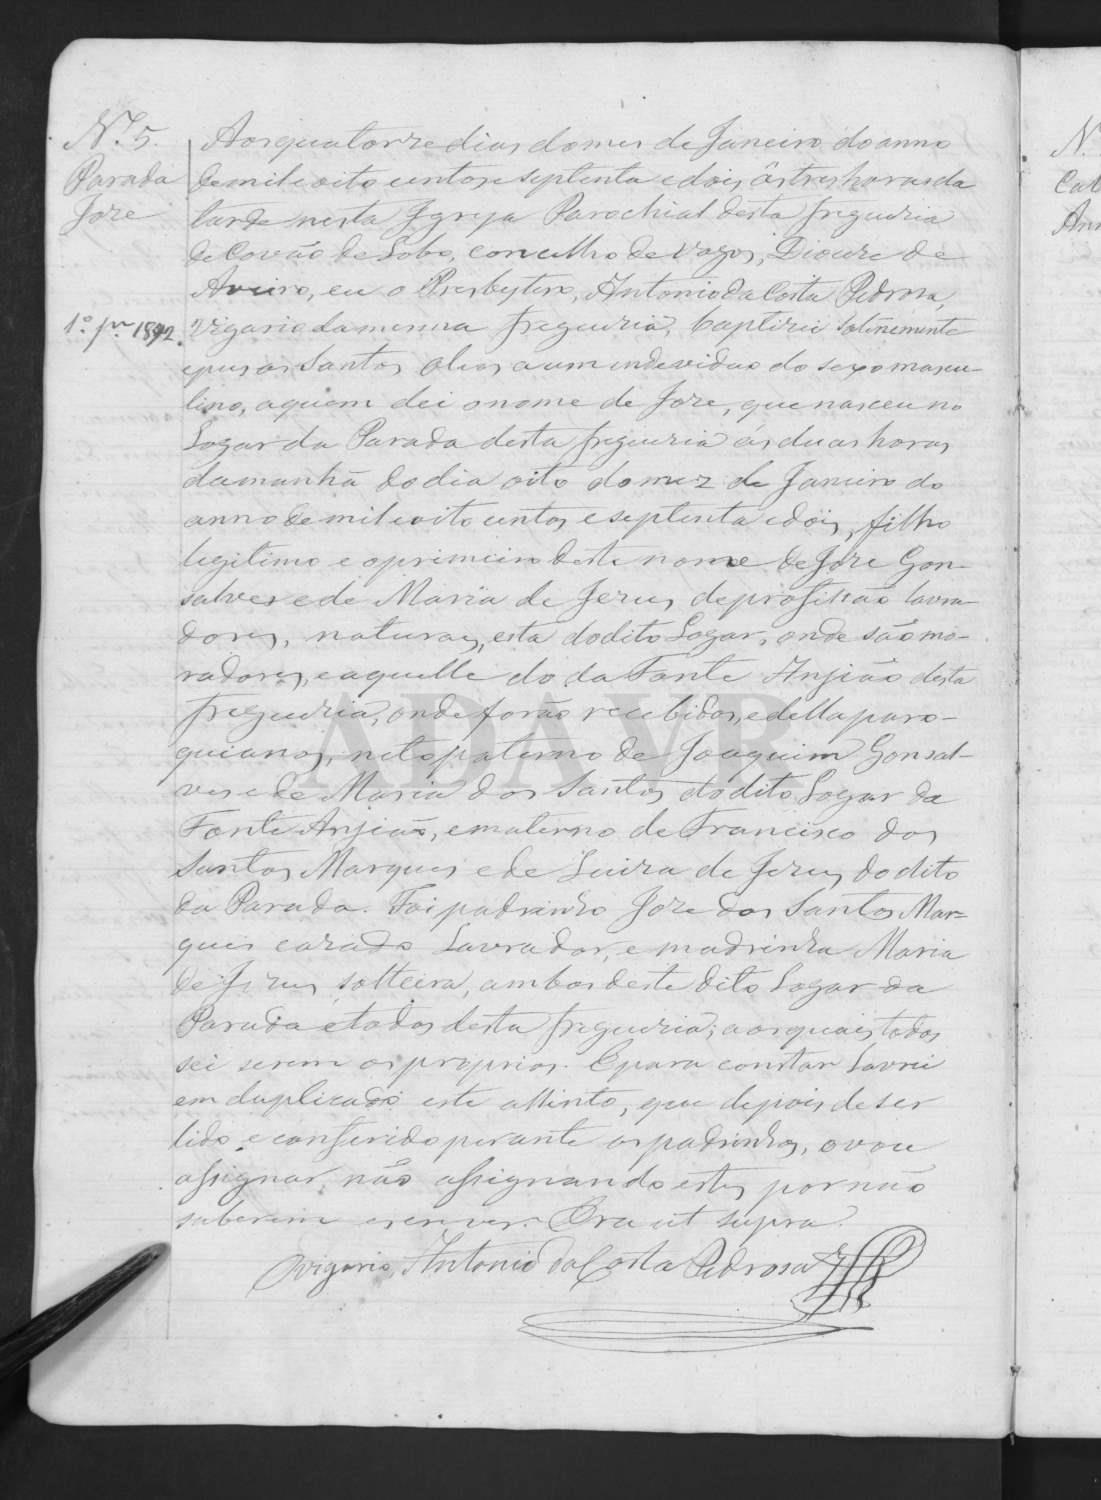 Nº 5.
Parada
Joze
1º pr 1892.
Aos quatorze dias do mes de Janeiro do anno
de mil e oito centos e septenta e dois, ás tres horas da
tarde nesta Igreja Parochial desta freguezia
de Covão do Lobo, concelho de Vagos, Diocese de
Aveiro, eu o Presbytero, Antonio da Costa Pedrosa,
Vigario da mesma freguezia, baptizei solenemente
e pus os Santos Oleos a um individuo do sexo mascu-
lino, a quem dei o nome de Joze, que nasceu no
Logar da Parada desta freguezia ás duas horas
da manhã do dia oito do mez de Janeiro do
anno de mil e oito centos e septenta e dois, filho
legitimo e o primeiro deste nome de Joze Gon-
salves e de Maria de Jezus, de profissão lavra-
dores, naturaes, esta do dito Logar, onde são mo-
radores, e aquelle do da Fonte Anjião desta
freguezia, onde forão recebidos, e della paro-
quianos, neto paterno de Joaquim Gonsal-
ves e de Maria dos Santos do dito Logar da
Fonte Anjião, e materno de Francisco dos
Santos Marques e de Luiza de Jezus do dito
da Parada. Foi padrinho Joze dos Santos Mar=
ques cazado Lavrador, e madrinha Maria
de Jezus, solteira, ambos deste dito Logar da
Parada e todos desta freguezia, aos quaes todos
sei serem os proprios. E para constar Lavrei
em duplicado este assento, que depois de ser
lido e conferido perante os padrinhos, o vou
assignar, não assignando estes por não
saberem escrever. Era ut supra.
O vigario, Antonio da Costa Pedrosa
ADAVR
N.
Cab
Ann